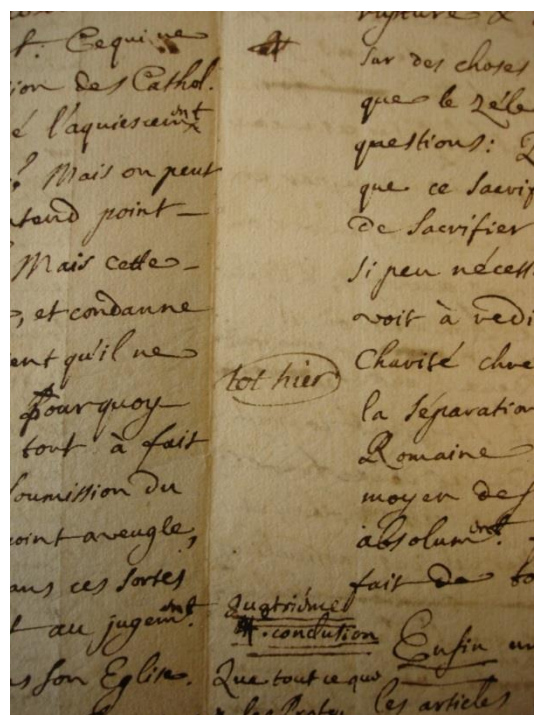 t. Ce qui ne
ion des Cathol.
é l'aquiescemt
? Mais on peut
tend point
Mais cette
, et condanne
ent qu'il ne
pourquoy
tout à fait
soumission du
point aveugle,
ans ces sortes
t au jugemt.
s son Eglise.
tot hier
quatriéme
conclusion
Que tout ce que
les Prote
rupture &
sur des choses
que le zéle
questions:
que ce sacrif
de sacrifier
si peu nécess
voit à
Charité chre
la séparation
Romaine
moyen des
absolumt.
fait de to
Enfin un
les articles